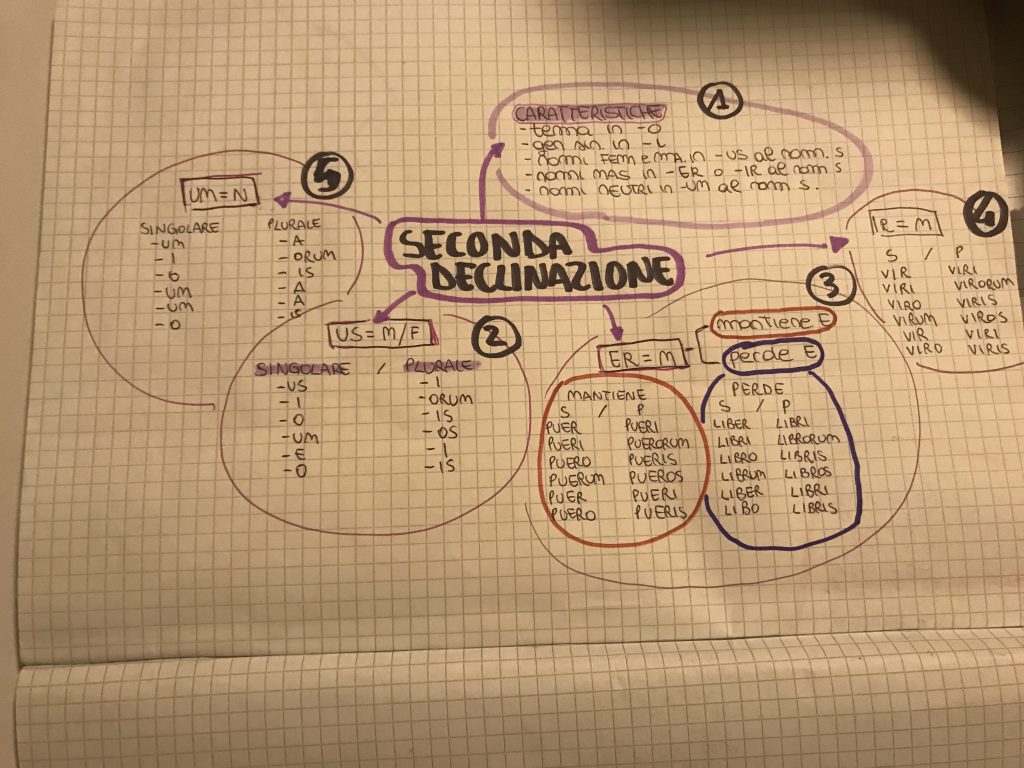 1
CARATTERISTICHE
- tema in -O
- gen sin in -i
- nomi FEM E MA in -US al nom. S
- nomi MAS in -ER O -IR al nom S
- nomi NEUTRI in -UM al nom S.
SECONDA
DECLINAZIONE
2
US = M/F
SINGOLARE / PLURALE
-US -I
-I -ORUM
-O -IS
-UM -OS
-E -I
-O -IS
3
ER = M
mantiene E
perde E
MANTIENE
S / P
PUER PUERI
PUERI PUERORUM
PUERO PUERIS
PUERUM PUEROS
PUER PUERI
PUERO PUERIS
PERDE
S / P
LIBER LIBRI
LIBRI LIBRORUM
LIBRO LIBRIS
LIBRUM LIBROS
LIBER LIBRI
LIBO LIBRIS
4
IR = M
S / P
VIR VIRI
VIRI VIRORUM
VIRO VIRIS
VIRUM VIROS
VIR VIRI
VIRO VIRIS
5
UM = N
SINGOLARE PLURALE
-UM -A
-I -ORUM
-O -IS
-UM -A
-UM -A
-O -IS